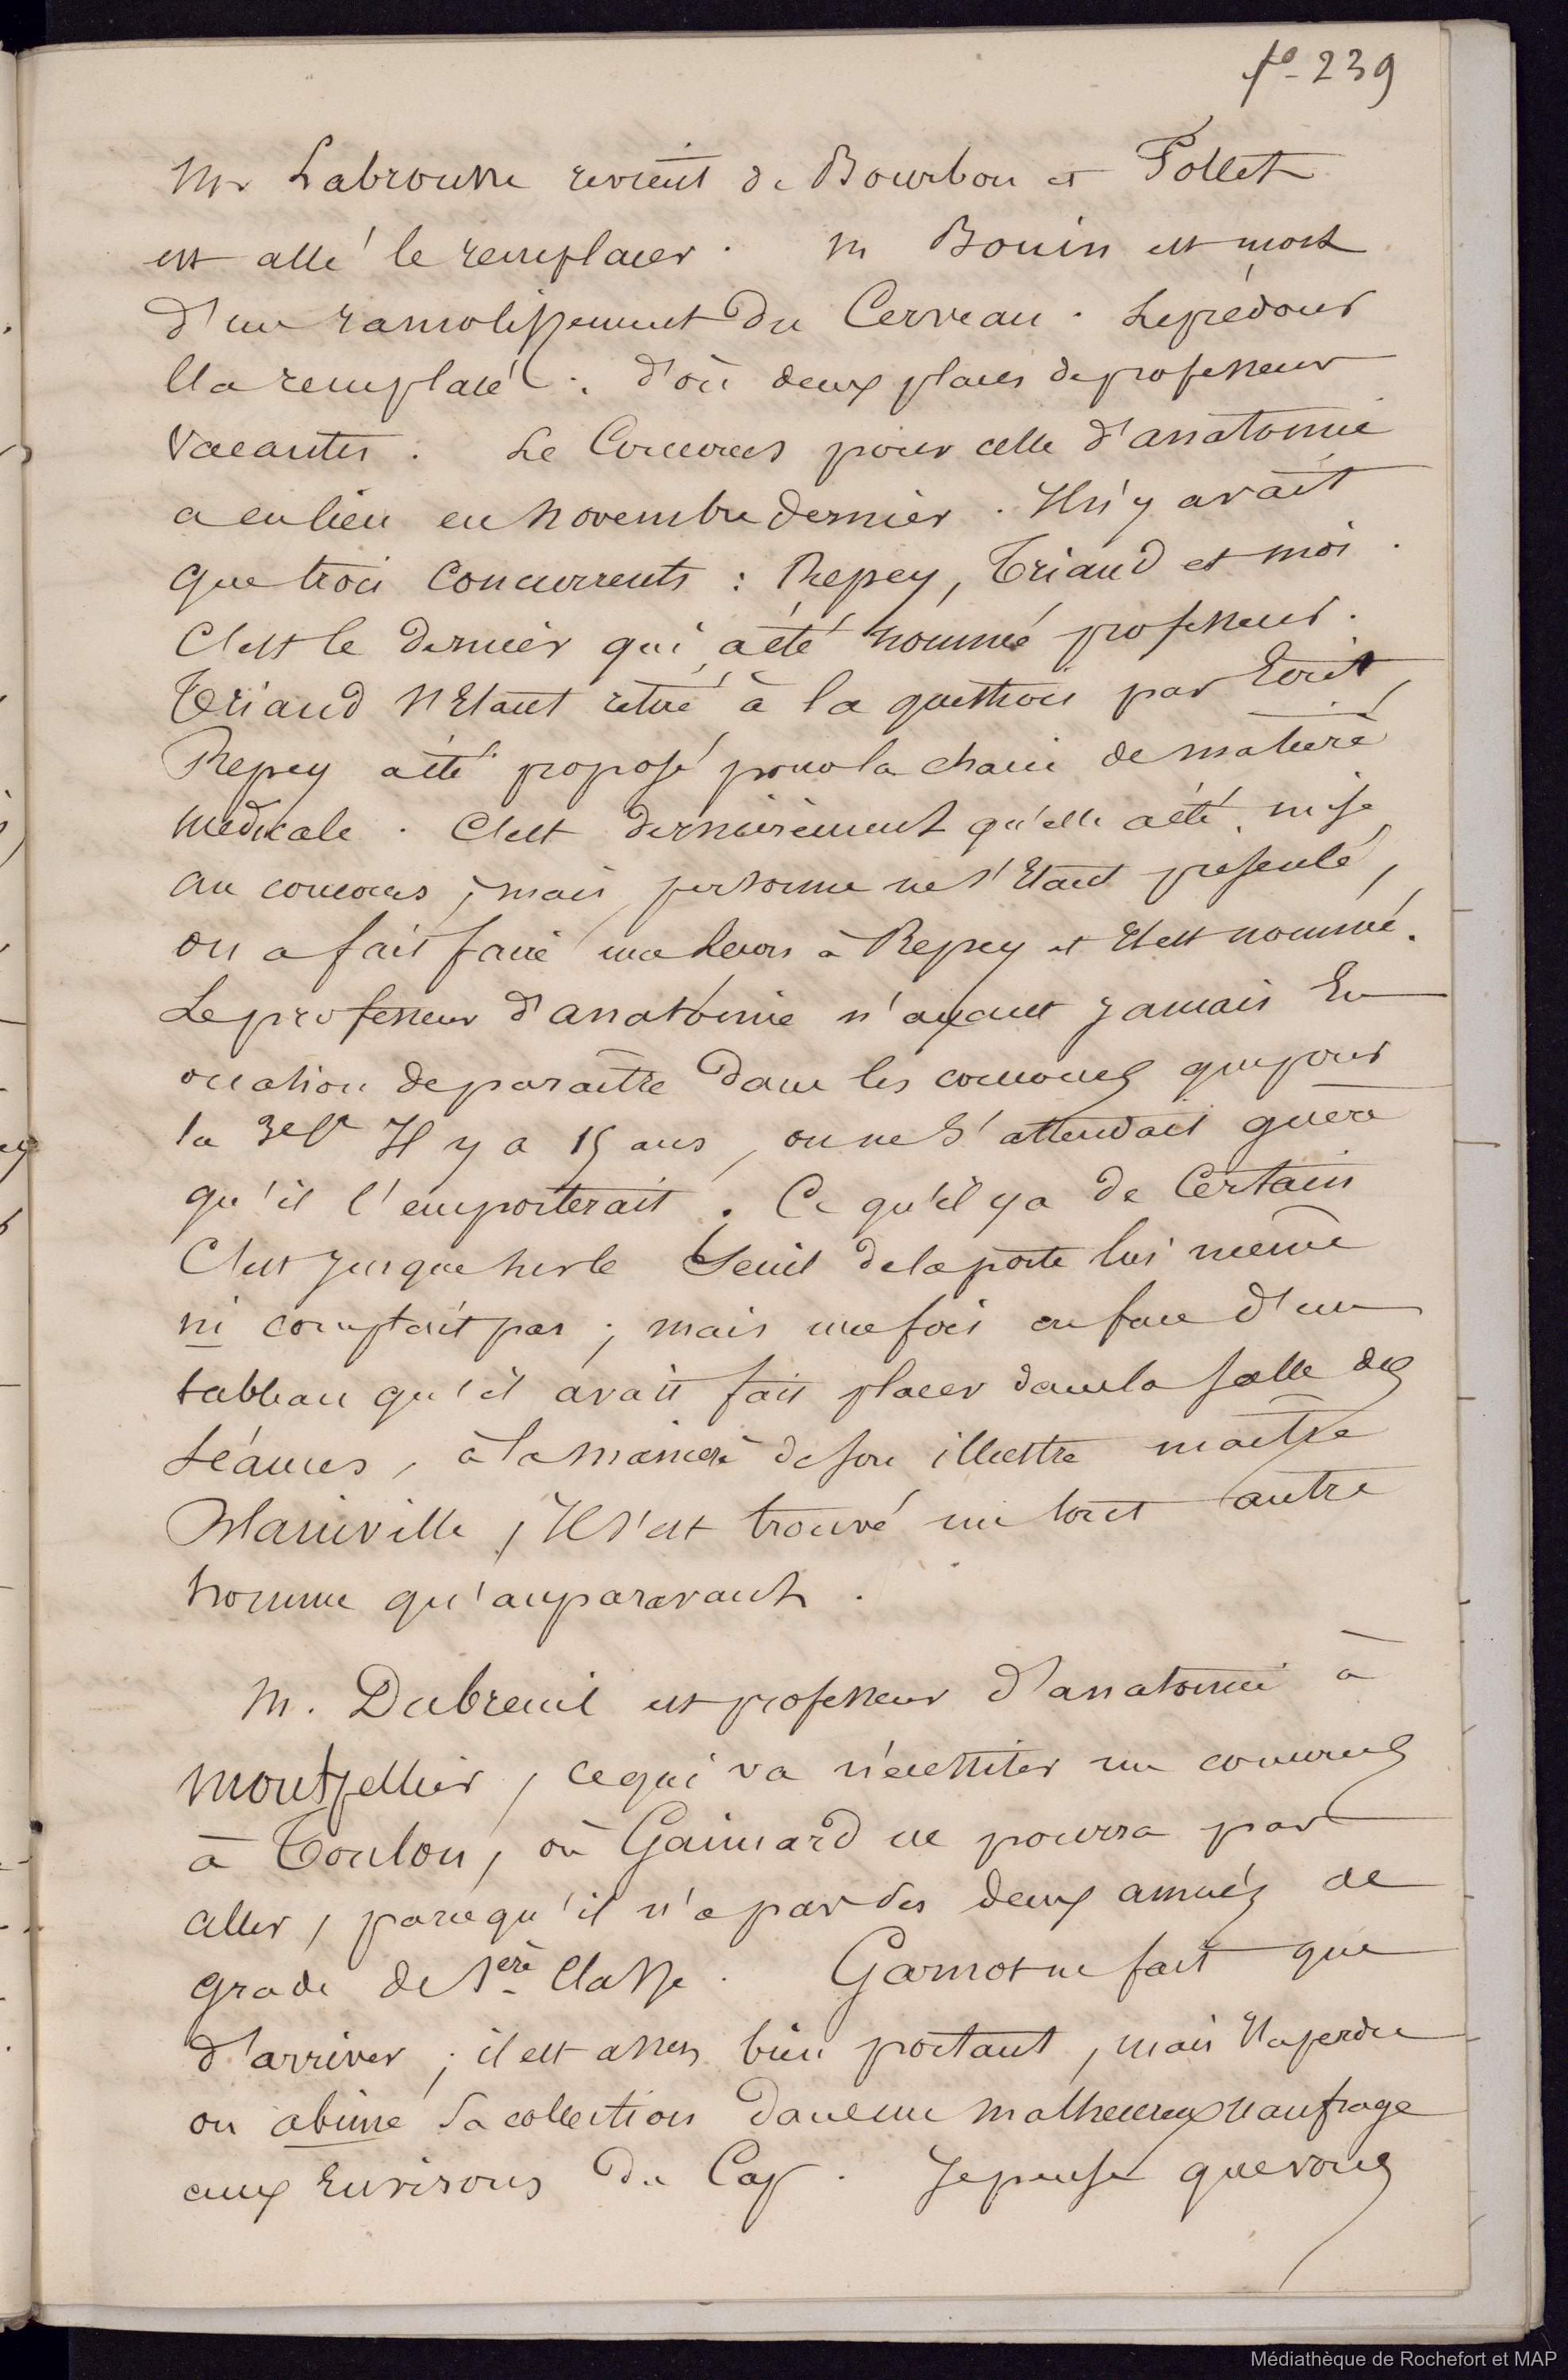 fo- 239
Mr Labrousse revient de Bourbon et Follet
est allé le remplacer. M Bouin est mort
d'un ramolissement du Cerveau. Leprédour
l'a remplacé : d'où deux places de professeur
Vacantes. Le Concours pour celle d'anatomie
a eu lieu en novembre dernier. Il n'y avait
que trois concurrents : Repey, Triaud et moi.
C'est le dernier qui a été nommé professeur.
Triaud s'Etant retiré à la question par Ecrit,
Repey a été proposé pour la chaire de matière
médicale. C'est dernièrement qu'elle a été mise
au concours ; mais personne ne s'Etant présenté,
on a fait faire une leçon à Repey et Il est nommé.
Le professeur d'anatomie n'ayant jamais Eu
occation de paraître dans les concours que pour
la 3e Il y a 15 ans, on ne S'attendait guère
qu'il l'emporterait. Ce qu'il y a de Certain
C'est jusque sur le Seuil de la porte lui même
ni comptait pas ; mais une fois en face d'un
tableau qu'il avait fait placer dans la salle des
Séances, à la manière de son illustre maître
, Il s'est trouvé un tout autre
homme qu'auparavant.
M. Dubreuil est professeur d'anatomie à
Montpellier, ce qui va nécessiter un concours
à Toulon, où Gaimard ne pourra pas
aller, parcequ'il n'a pas ses deux années de
grade de 1ère Classe. Garnot ne fait que
d'arriver ; il est assez bien portant, mais Il a perdu
ou abimé Sa collection dans un malheureux naufrage
aux Environs du Cap. Je pense que vous
Médiathèque de Rochefort et MAP